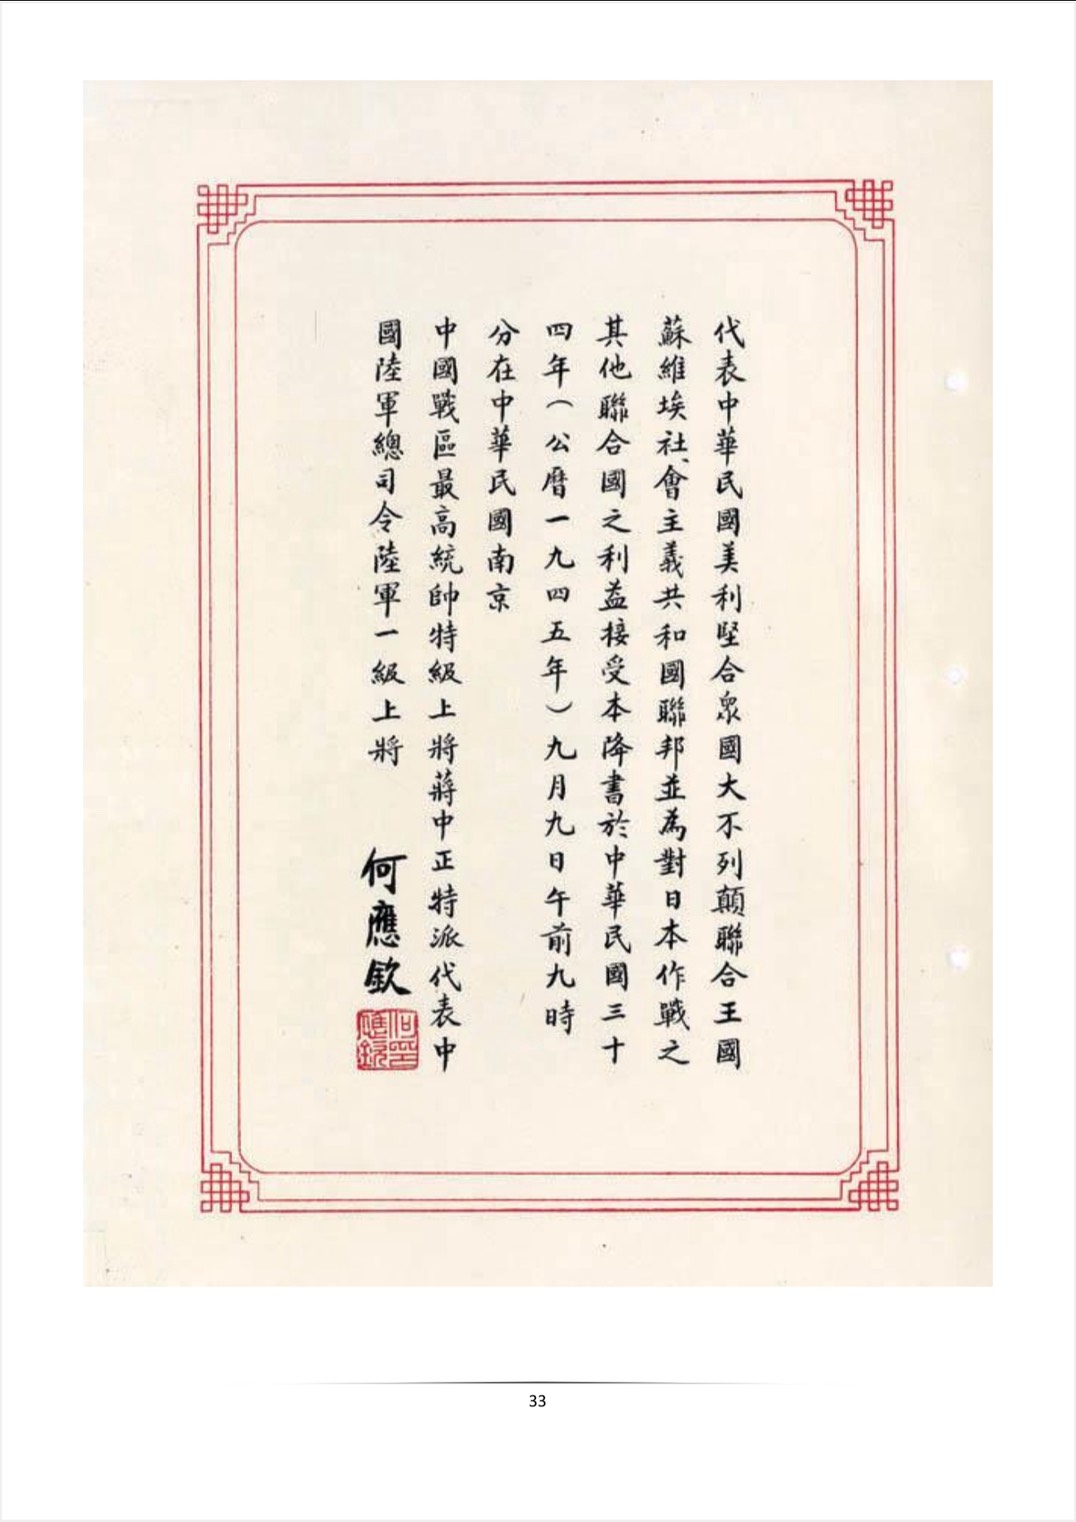 代表中華民國美利堅合衆國大不列顛聯合王國
蘇維埃社會主義共和國聯邦並為對日本作戰之
其他聯合國之利益接受本降書於中華民國三十
四年（公曆一九四五年）九月九日午前九時
分在中華民國南京
中國戰區最高統帥特級上將蔣中正特派代表中
國陸軍總司令陸軍一級上將
何應欽
何應欽印
33